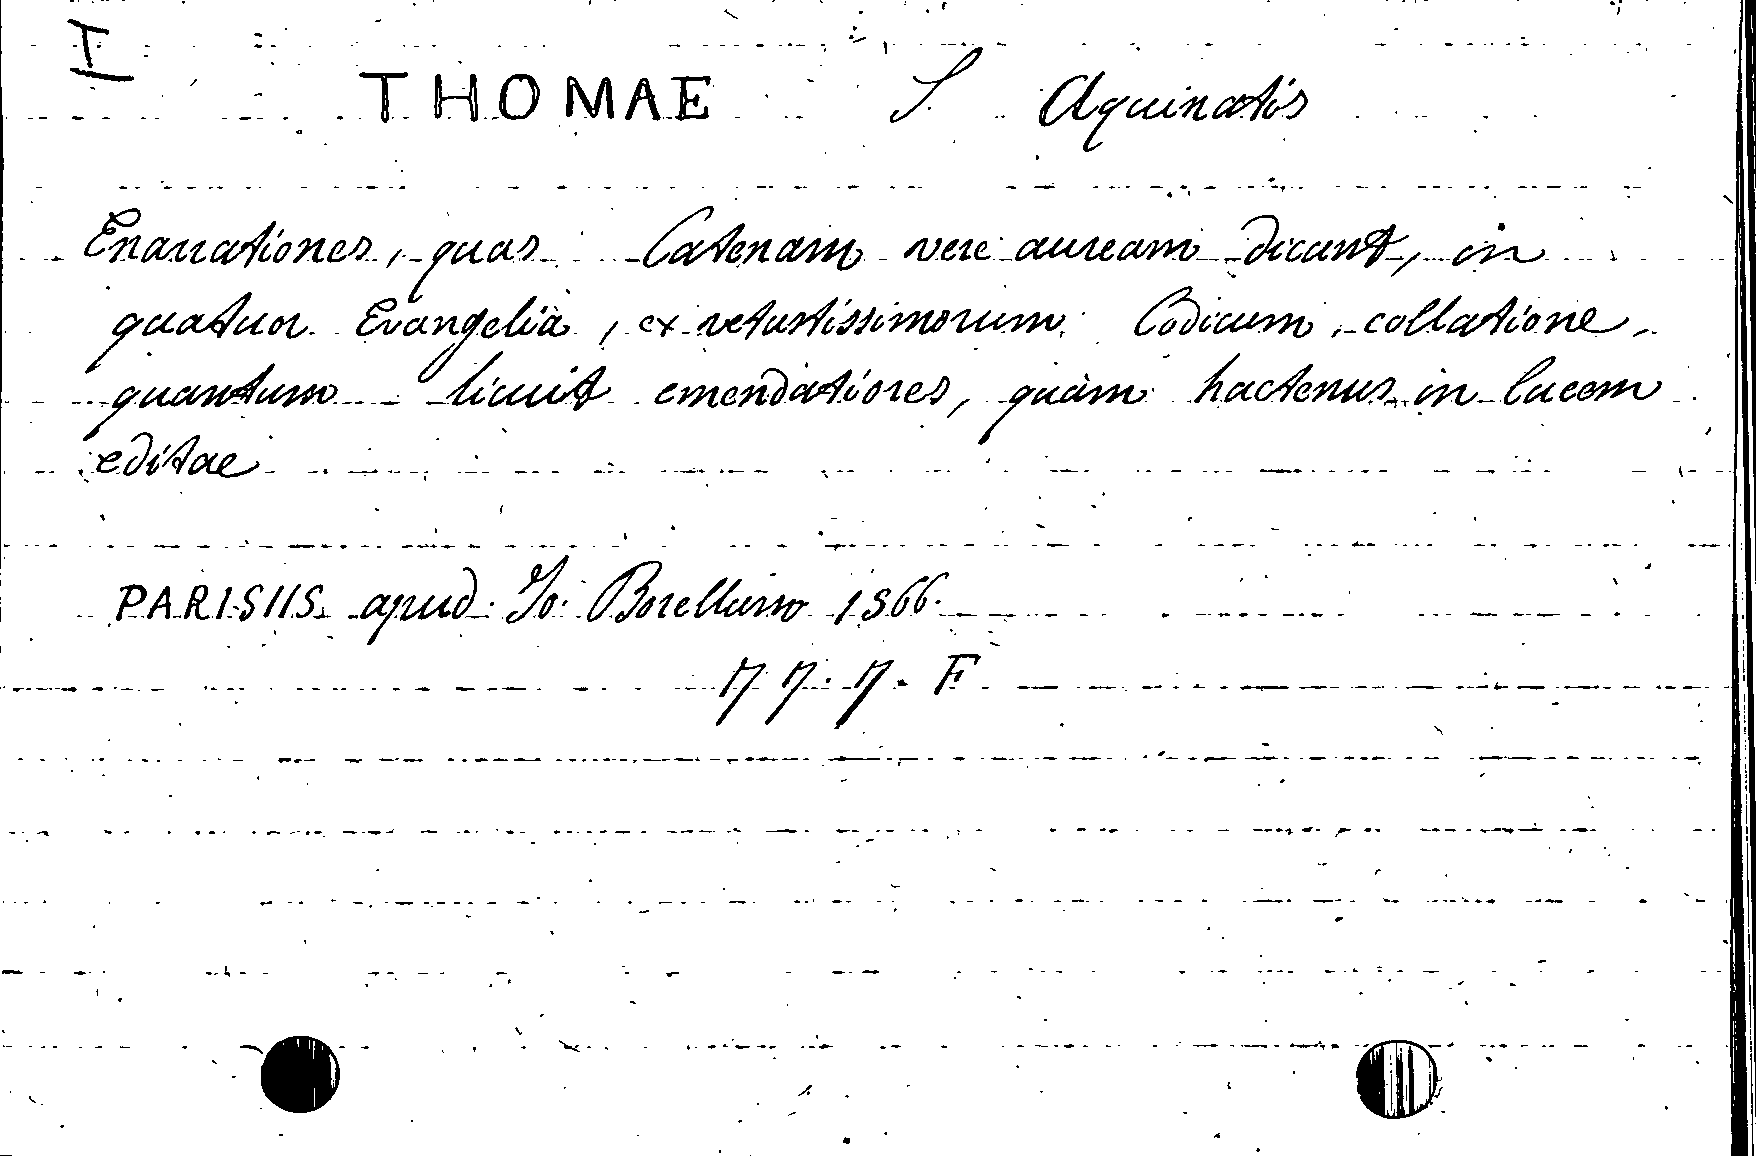 I
THOMAE S. Aquinatis
Enarrationes, quas Catenam vere auream dicunt, in
quatuor Evangelia, ex vetustissimorum Codicum collatione
quantum licuit emendatiores, quàm hactenus in lucem
editae
PARISIIS apud Io: Borellum 1566.
77.7.F